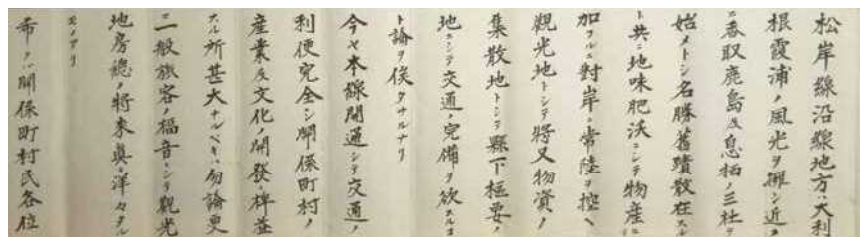 松岸線沿線地方ハ大利
根霞浦ノ風光ヲ擁シ近ニ
ニ香取鹿島及息栖ノ三社ヲ
始メトシ名勝舊蹟散在スル
ト共ニ地味肥沃ニシテ物産ニ
加フルニ對岸ニ常陸ヲ控ヘ
觀光地トシテ將又物資ノ
集散地トシテ縣下樞要ノ
地ニシテ交通ノ完備ヲ欲スルコ
ト論ヲ俟タサルナリ
今ヤ本線開通シテ交通ノ
利便完全シ關係町村ノ
産業及文化ノ開發ニ裨益
スル所甚大ナルベキハ勿論更
ニ一般旅客ノ福音ニシテ觀光
地房總ノ將來眞ニ洋々タル
モノアリ
希クハ關係町村民各位